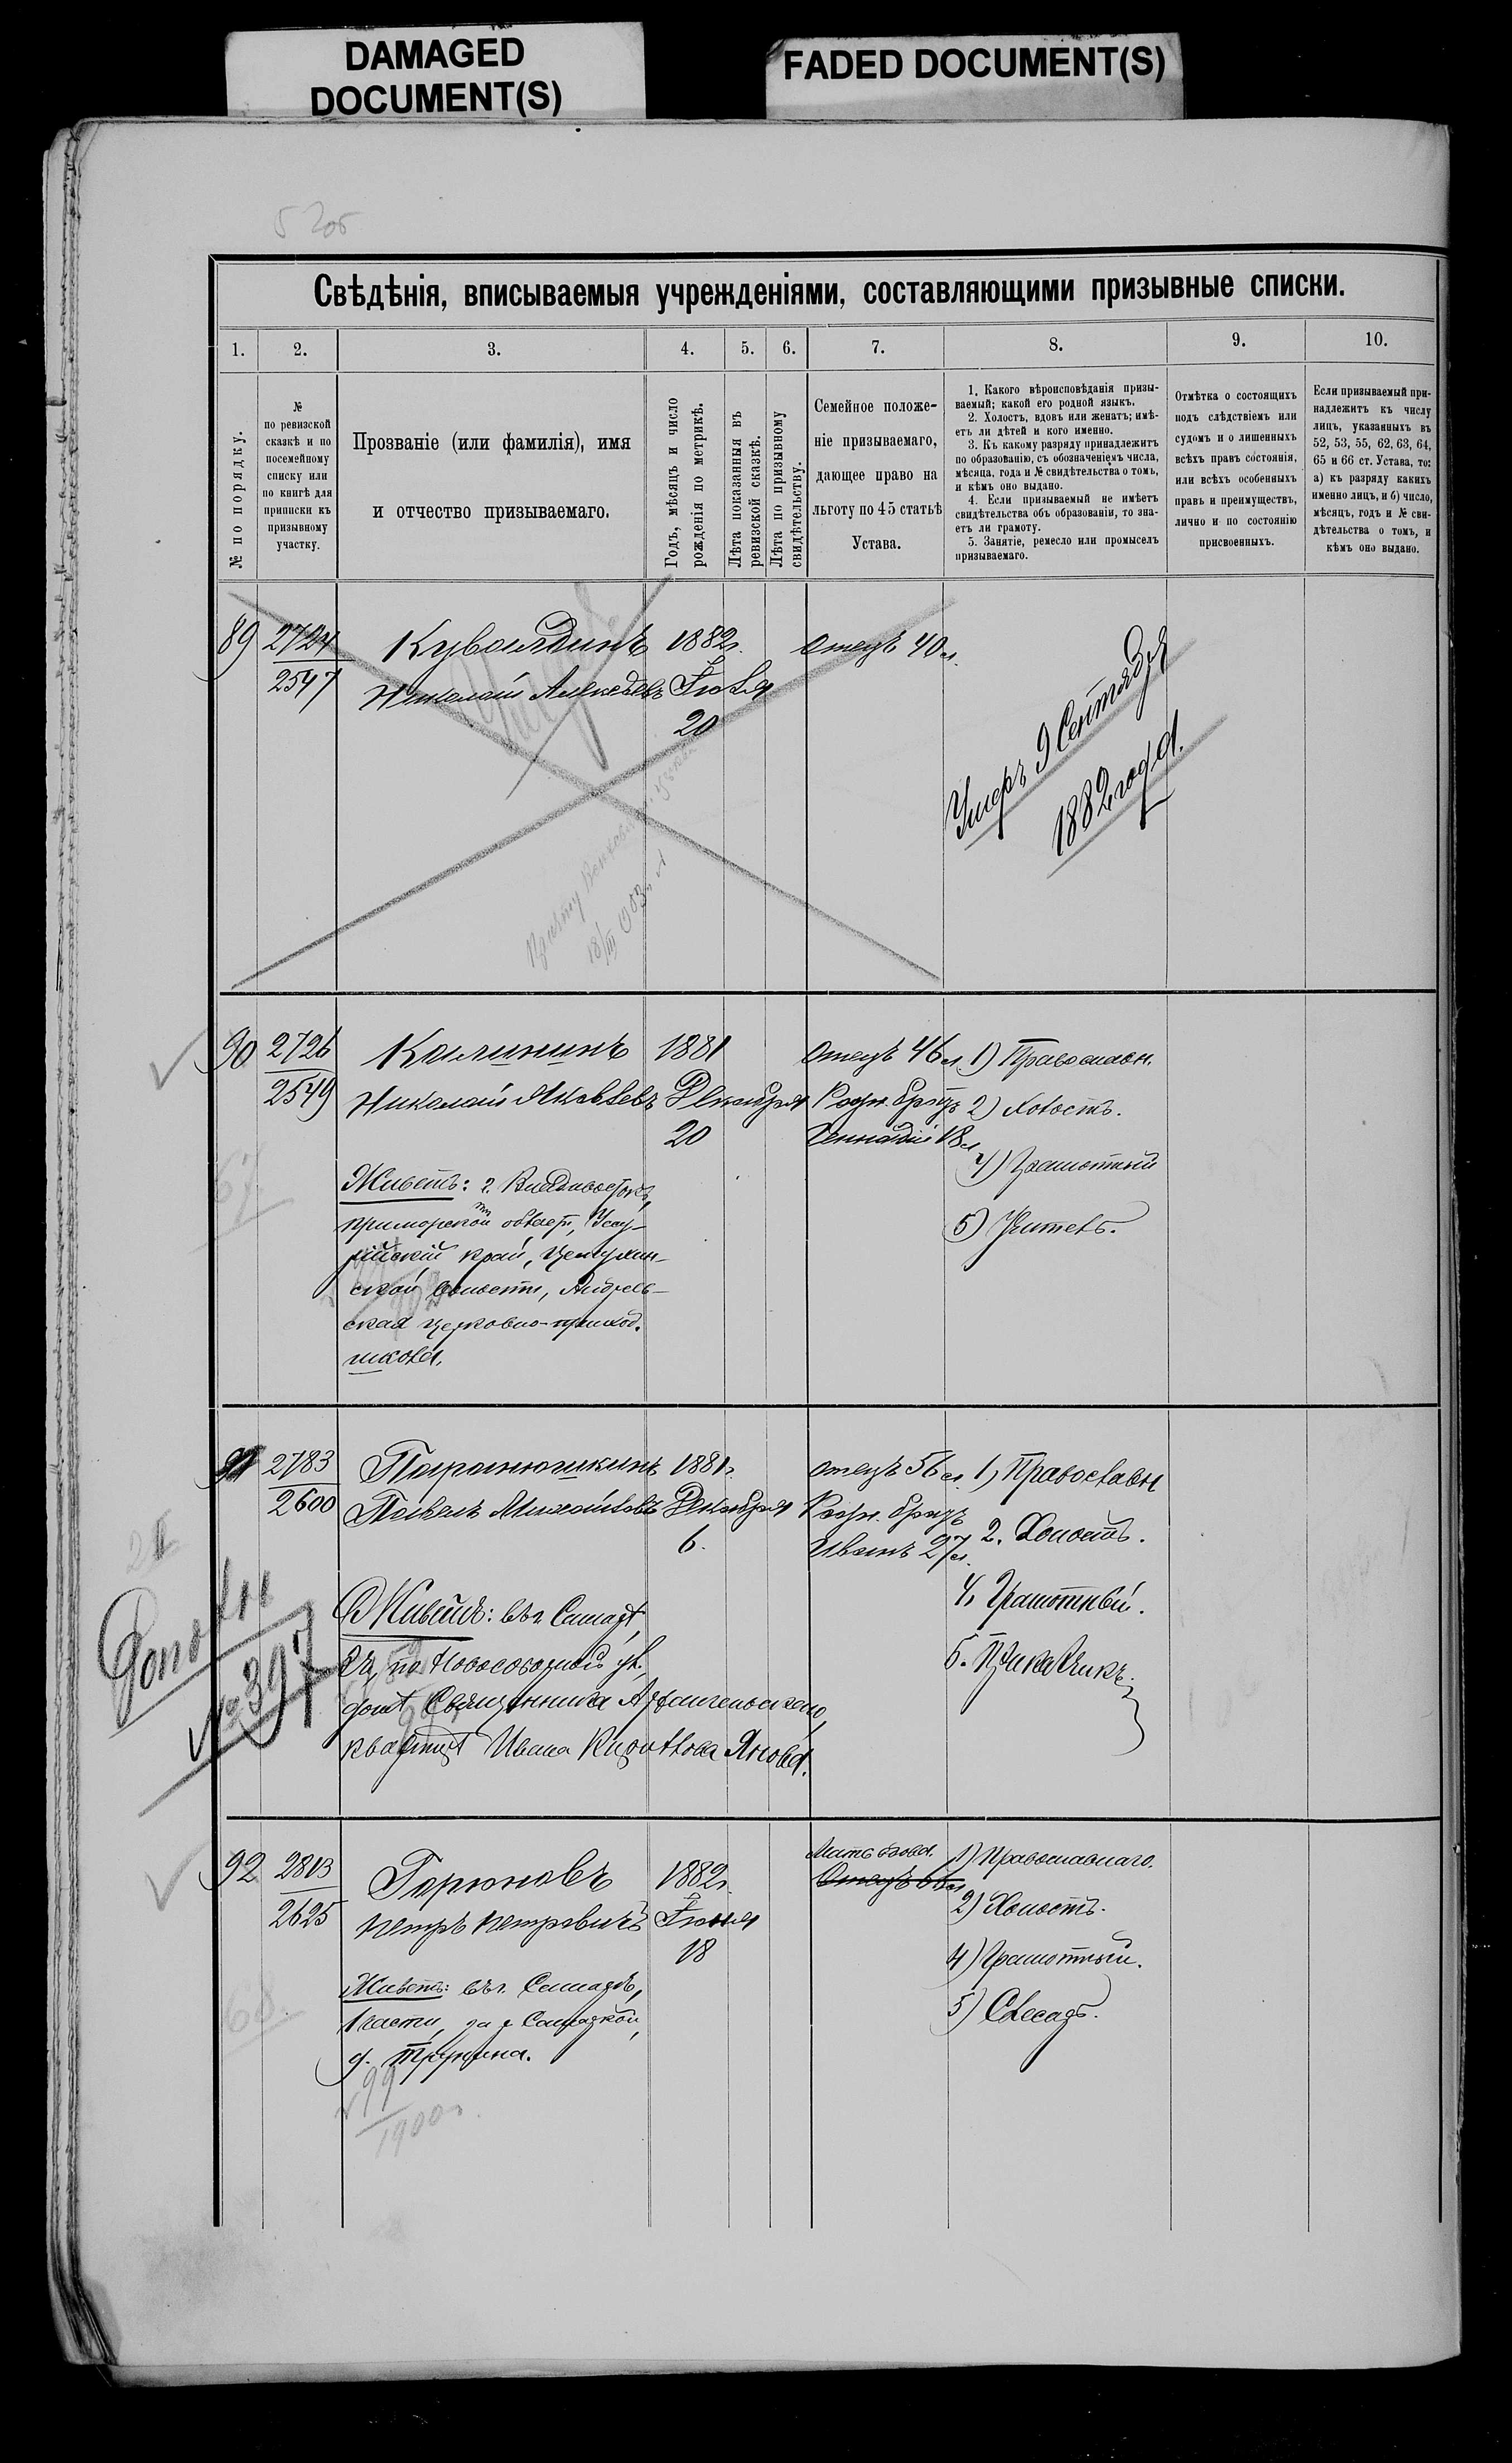 DAMAGED
DOCUMENT(S)
FADED DOCUMENT(S)
Свѣдѣнія, вписываемыя учрежденіями, составляющими призывные списки.
1.
2.
3.
4.
5.
6.
7.
8.
9.
10.
№ по порядку.
№
по ревизской
сказкѣ и по
посемейному
списку или
по книгѣ для
приписки къ
призывному
участку.
Прозваніе (или фамилія), имя
и отчество призываемаго.
Годъ, мѣсяцъ и число
рожденія по метрикѣ.
Лѣта показанныя въ
ревизской сказкѣ.
Лѣта по призывному
свидѣтельству.
Семейное положе-
ніе призываемаго,
дающее право на
льготу по 45 статьѣ
Устава.
1. Какого вѣроисповѣданія призы-
ваемый; какой его родной языкъ.
2. Холостъ, вдовъ или женатъ; имѣ-
етъ ли дѣтей и кого именно.
3. Къ какому разряду принадлежитъ
по образованію, съ обозначеніемъ числа,
мѣсяца, года и № свидѣтельства о томъ,
и кѣмъ оно выдано.
4. Если призываемый не имѣетъ
свидѣтельства объ образованіи, то зна-
етъ ли грамоту.
5. Занятіе, ремесло или промыселъ
призываемаго.
Отмѣтка о состоящихъ
подъ слѣдствіемъ или
судомъ и о лишенныхъ
всѣхъ правъ состоянія,
или всѣхъ особенныхъ
правъ и преимуществъ,
лично и по состоянію
присвоенныхъ.
Если призываемый при-
надлежитъ къ числу
лицъ, указанныхъ въ
52, 53, 55, 62, 63, 64,
65 и 66 ст. Устава, то:
а) къ разряду какихъ
именно лицъ, и б) число,
мѣсяцъ, годъ и № сви-
дѣтельства о томъ, и
кѣмъ оно выдано.
89
2724
2547
Кувалдинъ
Николай Алексѣевъ
1882г.
Іюля
20
Отецъ 40 л.
Умеръ 9 Сентября
1882 года.
18/III 903 г.
90
2726
2549
Калининъ
Николай Яковлевъ
1881
Декабря
20
Отецъ 46 л.
Родн. братъ
Геннадій 18 л.
1) Православн.
2) Холостъ.
4) Грамотный
5) Учитель.
67
Живетъ: г. Владивостокъ,
Приморской област, Уссу-
рійскій край, Цемухин-
ской волости, Андреев-
ская церковно-приход.
школа.
91
2783
2600
Патранюшкинъ
Павелъ Михайловъ
1881г.
Декабря
6.
Отецъ 56 л.
Родн. братъ
Иванъ 27 л.
1) Православн
2. Холостъ.
4. Грамотный.
5. Прикащикъ.
№ 397
Живетъ: въ г. Самарѣ,
3 ч, по Новособорной ул.,
домъ Священника Архангельскаго,
квартира Ивана Кирилова Янова.
92
2813
2625
Горюновъ
Петръ Петровичъ
1882г.
Іюня
18
Мать вдова.
Отецъ 66 л
1) Православнаго.
2) Холостъ.
4) Грамотный.
5) Слесарь.
68
Живетъ: въ г. Самарѣ,
1 части, за р. Самаркой,
д. Трунина.
№ 99
1900 г.